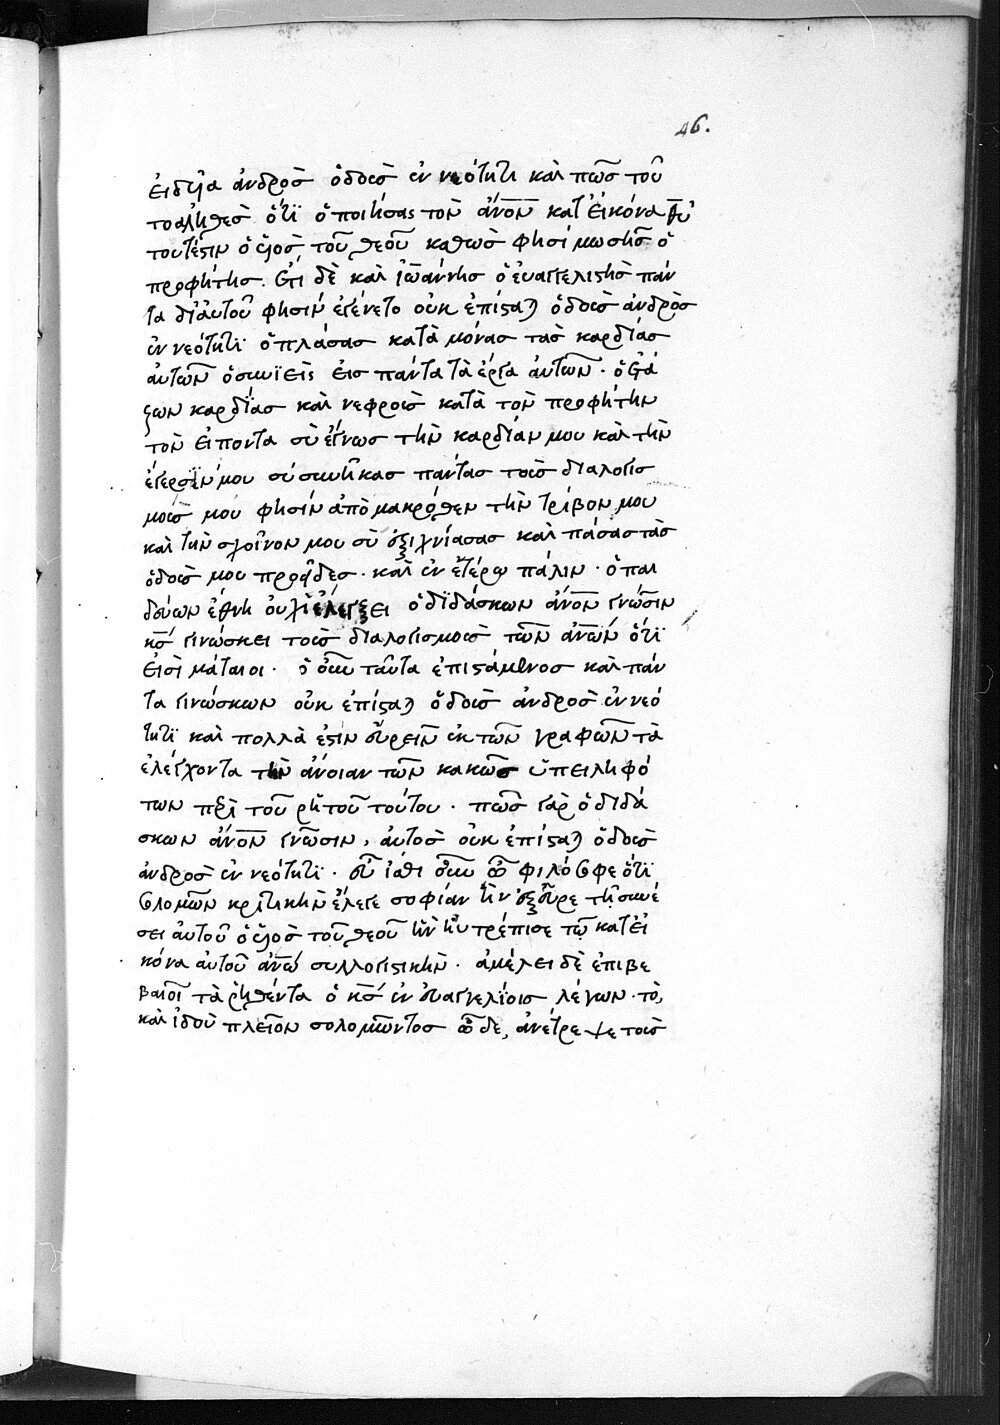 46.
εἰδυῖα ἀνδρὸς ὁδοὺς ἐν νεότητι καὶ πῶς τοῦ
το ἀληθὲς ὅτι ὁ ποιήσας τὸν ἄνον κατ εἰκόνα θυ
τουτέστιν ὁ υἱὸς τοῦ θεοῦ καθὼς φησί μωσῆς ὁ
προφήτης. ἔτι δὲ καὶ ἰωάννης ὁ εὐαγγελιστὴς πάν
τα δι αὐτοῦ φησίν ἐγένετο οὐκ ἐπίσταται ὁδοὺς ἀνδρὸς
ἐν νεότητι ὁ πλάσας κατὰ μόνας τὰς καρδίας
αὐτῶν ὁ συνιεὶς εἰς πάντα τὰ ἔργα αὐτῶν· ὁ ἐτά
ζων καρδίας καὶ νεφροὺς κατὰ τὸν προφήτην
τὸν εἰπόντα σὺ ἔγνως τὴν καρδίαν μου καὶ τὴν
ἔγερσίν μου σὺ συνῆκας πάντας τοὺς διαλογισ
μούς μου φησίν ἀπὸ μακρόθεν τὴν τρίβον μου
καὶ τὴν σχοῖνον μου σὺ ἐξιχνίασας καὶ πάσας τὰς
ὁδούς μου προεῖδες· καὶ ἐν ἑτέρῳ πάλιν· ὁ παι
δεύων ἔθνη οὐχὶ ἐλέγξει ὁ διδάσκων ἄνον γνῶσιν
κς γινώσκει τοὺς διαλογισμοὺς τῶν ἀνων ὅτι
εἰσὶ μάταιοι· ὁ οὖν ταῦτα ἐπιστάμενος καὶ πάν
τα γινώσκων οὐκ ἐπίσταται ὁδοὺς ἀνδρὸς ἐν νεό
τητι καὶ πολλὰ ἐστιν εὑρεῖν ἐκ τῶν γραφῶν τὰ
ἐλέγχοντα τὴν ἄνοιαν τῶν κακῶς ὑπειληφό
των περὶ τοῦ ῥητοῦ τούτου· πῶς γὰρ ὁ διδά
σκων ἄνον γνῶσιν, αὐτὸς οὐκ ἐπίσταται ὁδοὺς
ἀνδρὸς ἐν νεότητι· εὖ ἴσθι οὖν ὦ φιλόσοφε ὅτι
σολομῶν κριτικὴν ἔλεγε σοφίαν ἣν ἐξεῦρε τῇ συνέ
σει αὐτοῦ ὁ υἱὸς τοῦ θεοῦ ἣν ηὐτρέπισε τῷ κατ εἰ
κόνα αὐτοῦ ἀνω συλλογιστικὴν· ἀμέλει δὲ ἐπιβε
βαιοῖ τὰ ῥηθέντα ὁ κς ἐν εὐαγγελίοις λέγων· τὸ,
καὶ ἰδοὺ πλεῖον σολομῶντος ὧδε, ἀνέτρεψε τοὺς